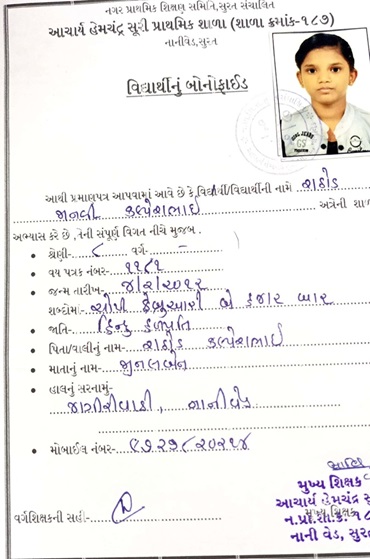 નગર પ્રાથમિક શિક્ષણ સમિતિ,સુરત સંચાલિત
આચાર્ય હેમચંદ્ર સૂરી પ્રાથમિક શાળા (શાળા ક્રમાંક-૧૮૭)
નાનીવેડ,સુરત
વિદ્યાર્થીનું બોનોફાઈડ
આથી પ્રમાણપત્ર આપવામાં આવે છે કે,વિદ્યાર્થી/વિદ્યાર્થીની નામે રાઠોડ
કલ્પેશભાઈ અત્રેની શાળ
અભ્યાસ કરે છે .તેની સંપૂર્ણ વિગત નીચે મુજબ .
• શ્રેણી:- ૮ વર્ગ:- –
• વય પત્રક નંબર- ૧૧૮૧
• જન્મ તારીખ- ૪/૨/૨૦૧૨
શબ્દોમાં- ફેબ્રુઆરી બે હજાર બાર
• જાતિ- હિન્દુ હળપતિ
• પિતા/વાલીનું નામ- રાઠોડ કલ્પેશભાઈ
• માતાનું નામ- જીનલબેન
• હાલનું સરનામું-
નાનીવેડ
• મોબાઈલ નંબર- ૯૭૨૭૮૨૦૨૧૪
વર્ગશિક્ષકની સહી:-
મુખ્ય શિક્ષક
આચાર્ય હેમચંદ્ર સૂ
ન.પ્રા.શા.ક્ર. ૧૮
નાની વેડ, સુર